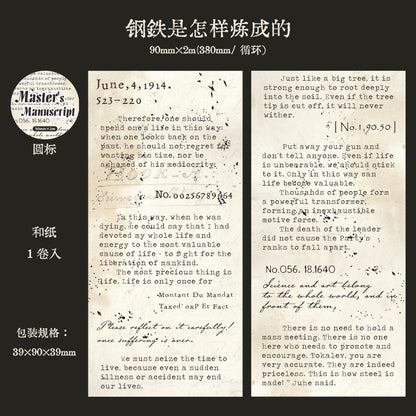 钢鉄是怎样炼成的
90mm×2m(380mm/ 循环)
Master's
Manuscript
90mm×2m
圆标
和纸
1 卷入
包装规格：
39×90×39mm
June,4,1914.
523-220
Therefore, one should
spend one's life in this way:
when one looks back on the
past, he should not regret for
wasting his time, nor be
ashamed of his mediocrity.
No.00256789064
In this way, when he was
dying, he could say that I had
devoted my whole life and
energy to the most valuable
cause of life - to fight for the
liberation of mankind.
The most precious thing is
life. Life is only once for
-Montant Du Mandat
Taxed oxP Et Fact
Please reflect on it carefully!
once suffering is over.
We must seize the time to
live, because even a sudden
illness or accident may end
our lives.
Just like a big tree, it is
strong enough to root deeply
into the soil. Even if the tree
tip is cut off, it will never
wither.
[No.1,90,50]
Put away your gun and
don't tell anyone. Even if life
is unbearable, we should stick
to it. Only in this way can
life become valuable.
Thousands of people form
a powerful transformer,
forming an inexhaustible
motive force.
The death of the leader
did not cause the Party's
ranks to fall apart.
No.056. 18.1640
Science and art belong
to the whole world, and in
front of them,
There is no need to hold a
mass meeting. There is no one
here who needs to promote and
encourage. Tokalev, you are
very accurate. They are indeed
priceless. This is how steel is
made! " Juhe said.